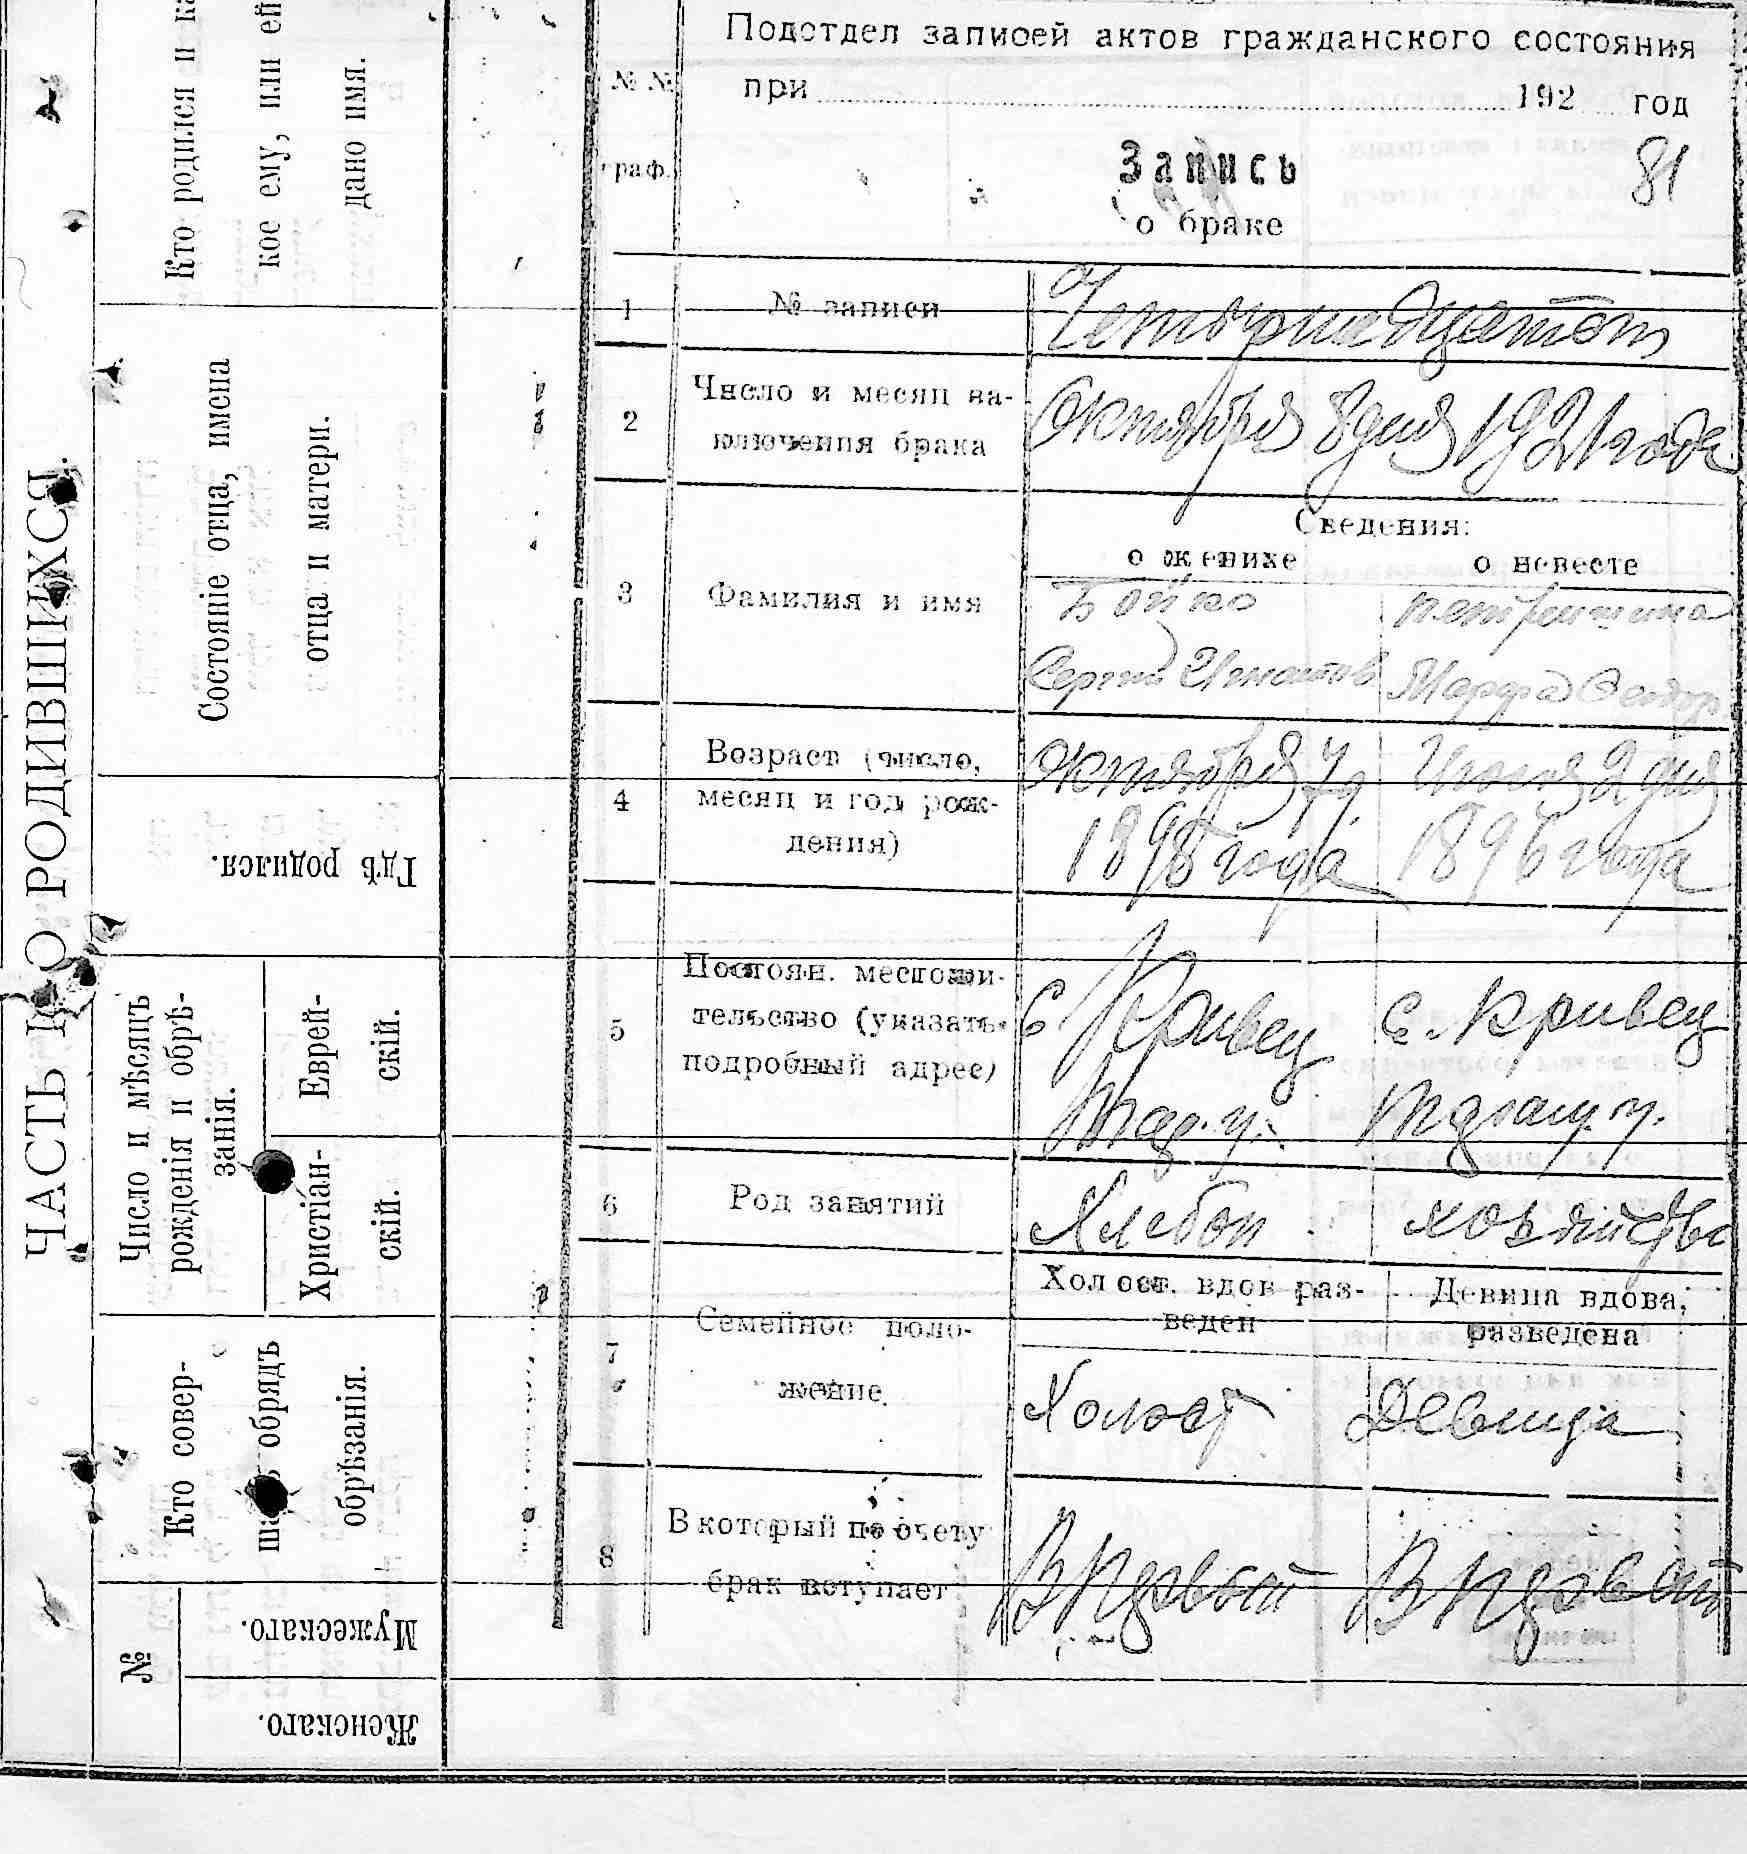 ЧАСТЬ I-О РОДИВШИХСЯ.
Кто родился и ка
кое ему, или ей
дано имя.
Состояніе отца, имена
отца и матери.
Гдѣ родился.
Число и мѣсяцъ
рожденія и обрѣ-
занія.
Еврей-
скій.
Христіан-
скій.
Кто совер-
обрядъ
обрѣзанія.
№
Мужескаго.
Женскаго.
Подотдел записей актов гражданского состояния
№ №
граф.
при 192 год
Запись
81
о браке
1 № записи
2 Число и месяц за-
ключения брака
Октября 8 дня 1921 года
Сведения:
о женихе о невесте
3 Фамилия и имя
Бойко
Сергий Игнатов Марфа Феодор
4 Возраст (число,
месяц и год рож-
дения)
Октября 7 д. 2 дня
1898 года 1896 года
5 Постоян. местожи-
тельство (указать
подробный адрес)
с Кривец с. Кривец
6 Род занятий
Хлебоп
Холост. вдов раз-
веден
Девица вдова,
разведена
7 Семейное поло-
жение
Холост Девица
8 В который по счету
брак вступает
В первый В первый